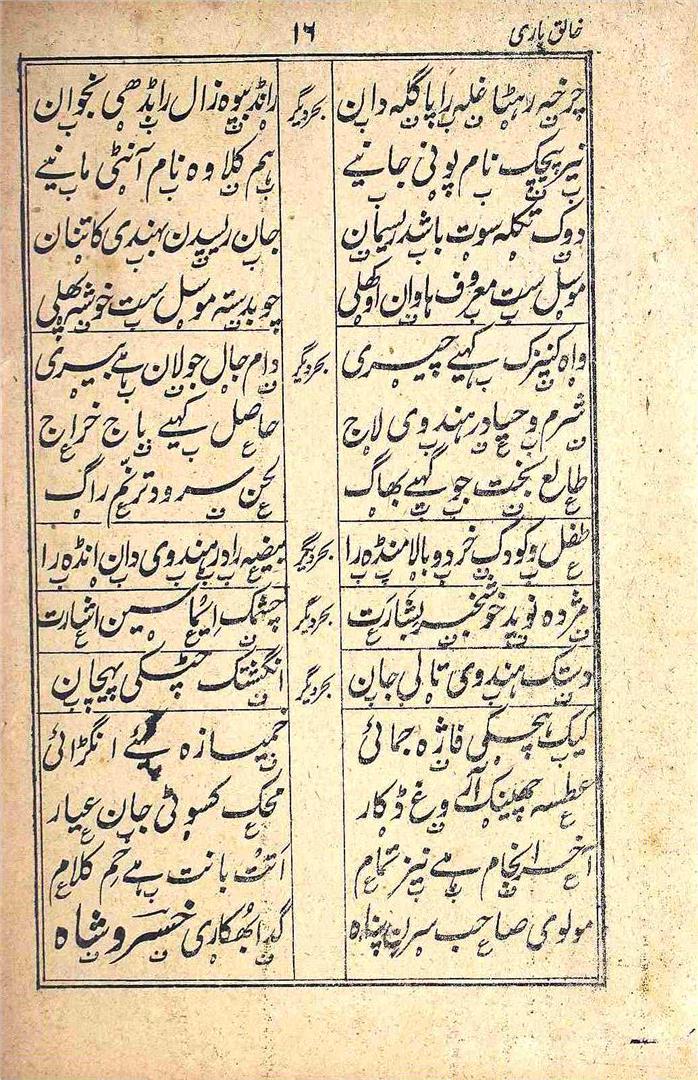 خالق باری ۱۶
چرخہ رہٹا غلہ را پاگلہ دان بحر دیگر رانڈ بیوہ زال را بڈھی بخوان
نیز پیچک نام پونی جانیے ہم کلاوہ نام آنٹی مانیے
دوک تکلہ سوت باشد ریسمان جان ریسیدن بہندی کاتنان
موسل ست معروف ہاون اوکھلی چوبدستہ موسل ست خوشہ پھلی
واہ کنیزک کہیے چیری بحر دیگر دام جال جولان ہے بیری
شرم و حیا در ہندوی لاج حاصل کہیے باج خراج
طالع بخت جو کہیے بھاگ لحن سرود ترنم راگ
طفل و کودک خرد و بالا منڈہ را بحر دیگر بیضہ را در ہندوی دان انڈہ را
مژدہ نوید خوشخبر بشارت بحر دیگر چشمک ایما سین اشارت
دستک ہندوی تالی جان بحر دیگر انگشتک چٹکی پہچان
کیک ہچکی فاژہ جمائی خمیازہ کہیے انگڑائی
عطسہ چھینک آروغ ڈکار محک کسوٹی جان عیار
آخر انجام ہے نیز تمام انت بانت ہے ختم کلام
مولوی صاحب سرن پناہ گدا بھکاری خسرو شاہ